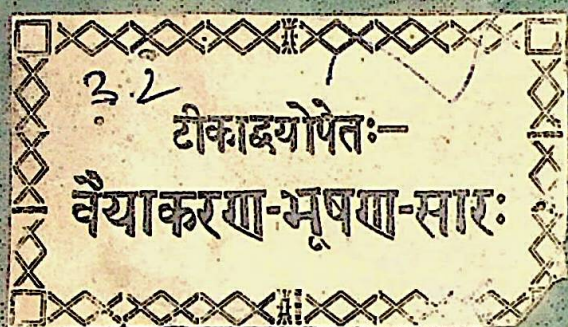 3.2
टीकाद्वयोपेतः—
वैयाकरण-भूषण-सारः